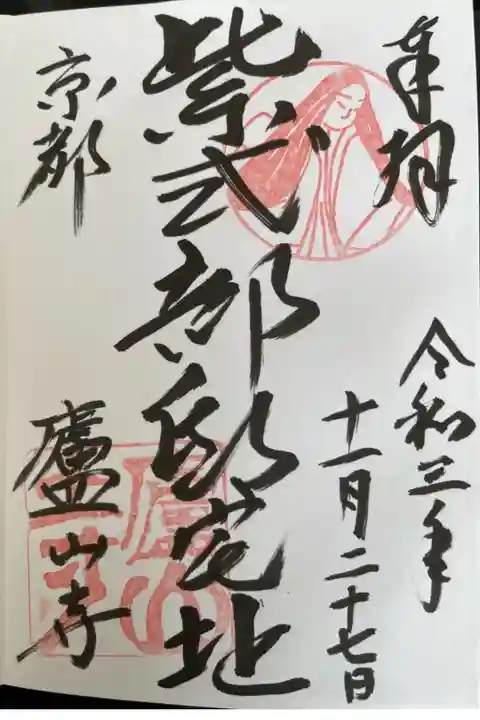 奉拝
令和三年
十一月二十七日
紫式部邸宅址
京都
廬山寺